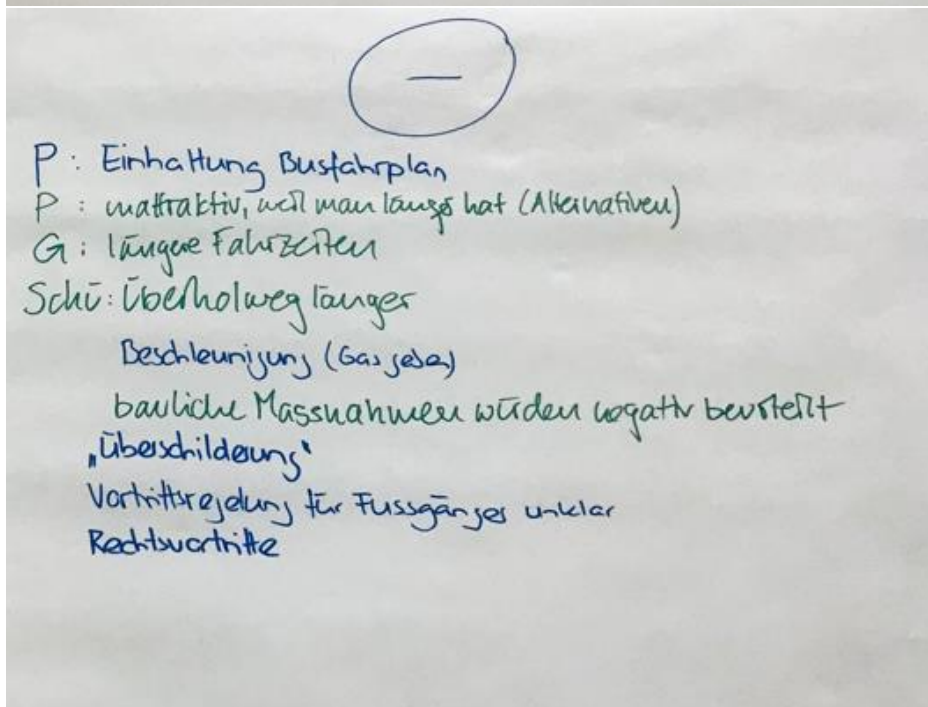 —
P: Einhaltung Busfahrplan
P: unattraktiv, weil man länger hat (Alternativen)
G: längere Fahrzeiten
Schü: Überholweg länger
Beschleunigung (Gas geben)
bauliche Massnahmen würden negativ beurteilt
„Überschilderung"
Vortrittsregelung für Fussgänger unklar
Rechtsvortritte